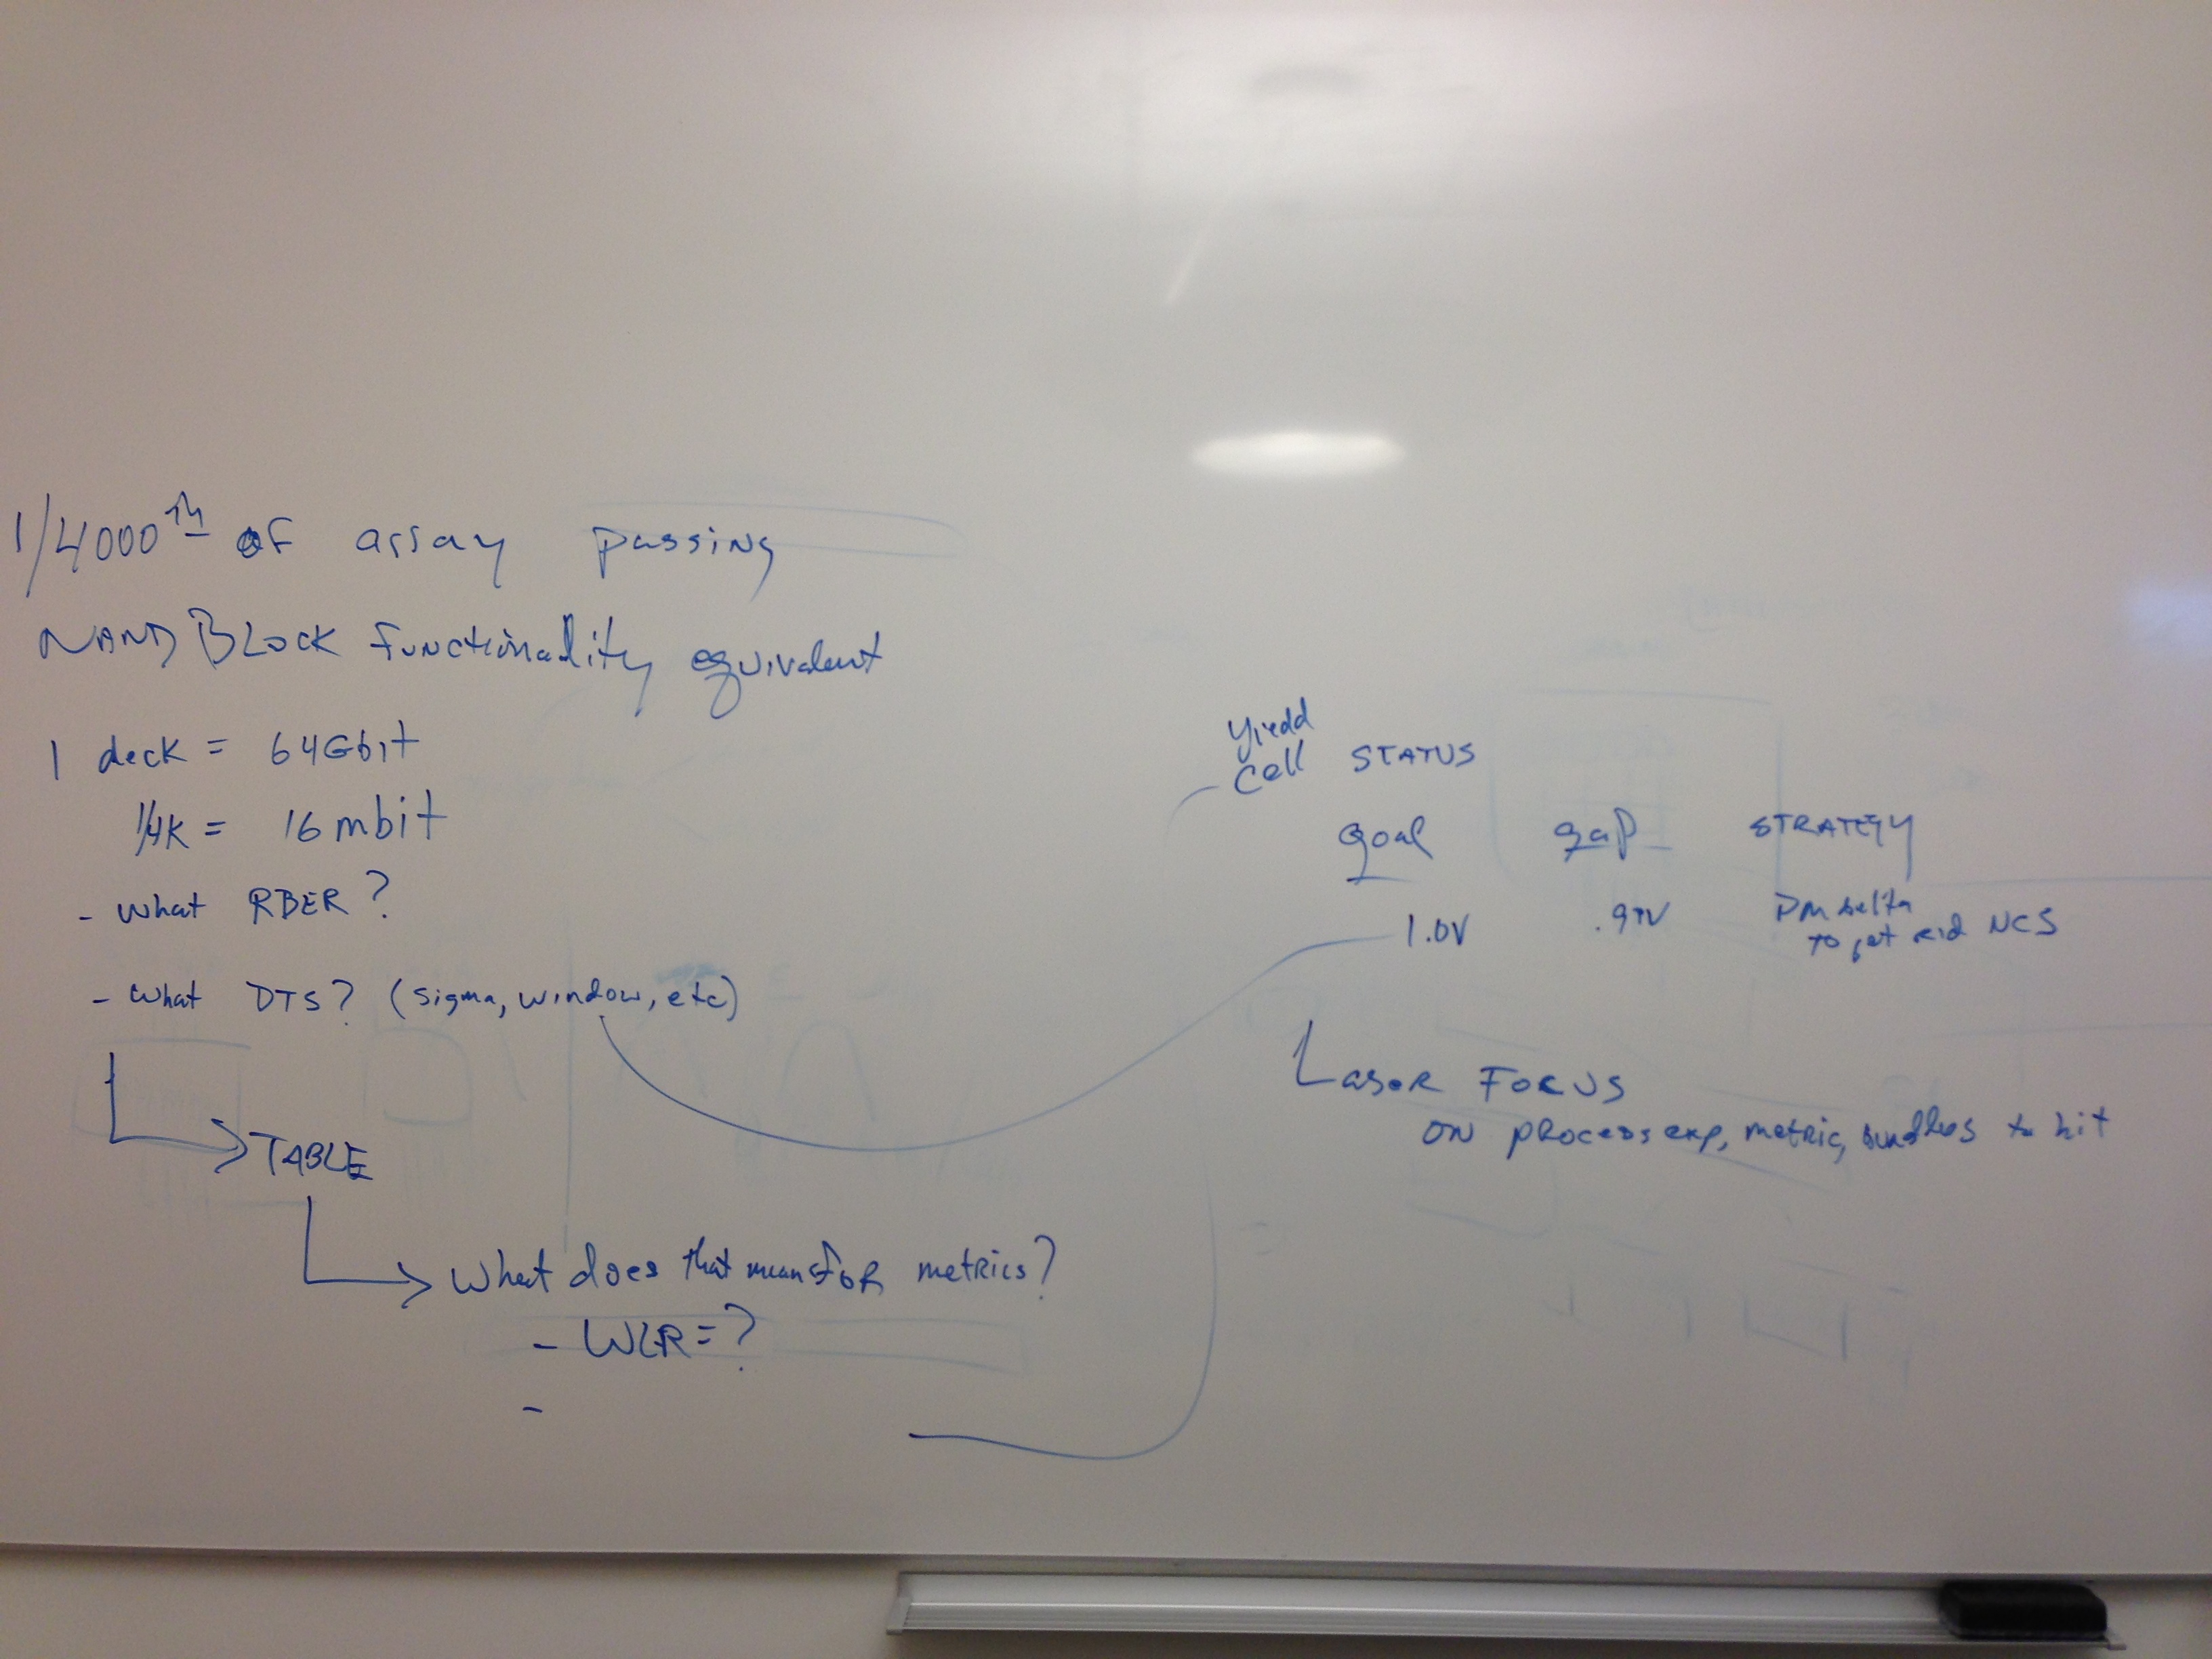 1/4000th of array passing
NAND BLOCK functionality equivalent
1 deck = 64Gbit
1/4K = 16 mbit
- what RBER?
- what DTS? (sigma, window, etc)
TABLE
What does that mean for metrics?
- WLR = ?
-
Yield
Cell STATUS
goal gap STRATEGY
1.0V
to get rid NCS
LASER FOCUS
ON process exp, metric, bundles to hit